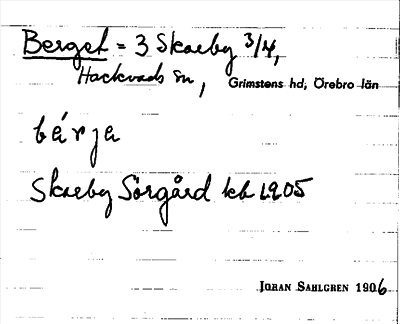 Berget = 3 Skaeby 3/4,
Hackvads sn, Grimstens hd, Örebro län
bärja
Skaeby Sörgård kb 1905
JOHAN SAHLGREN 1906